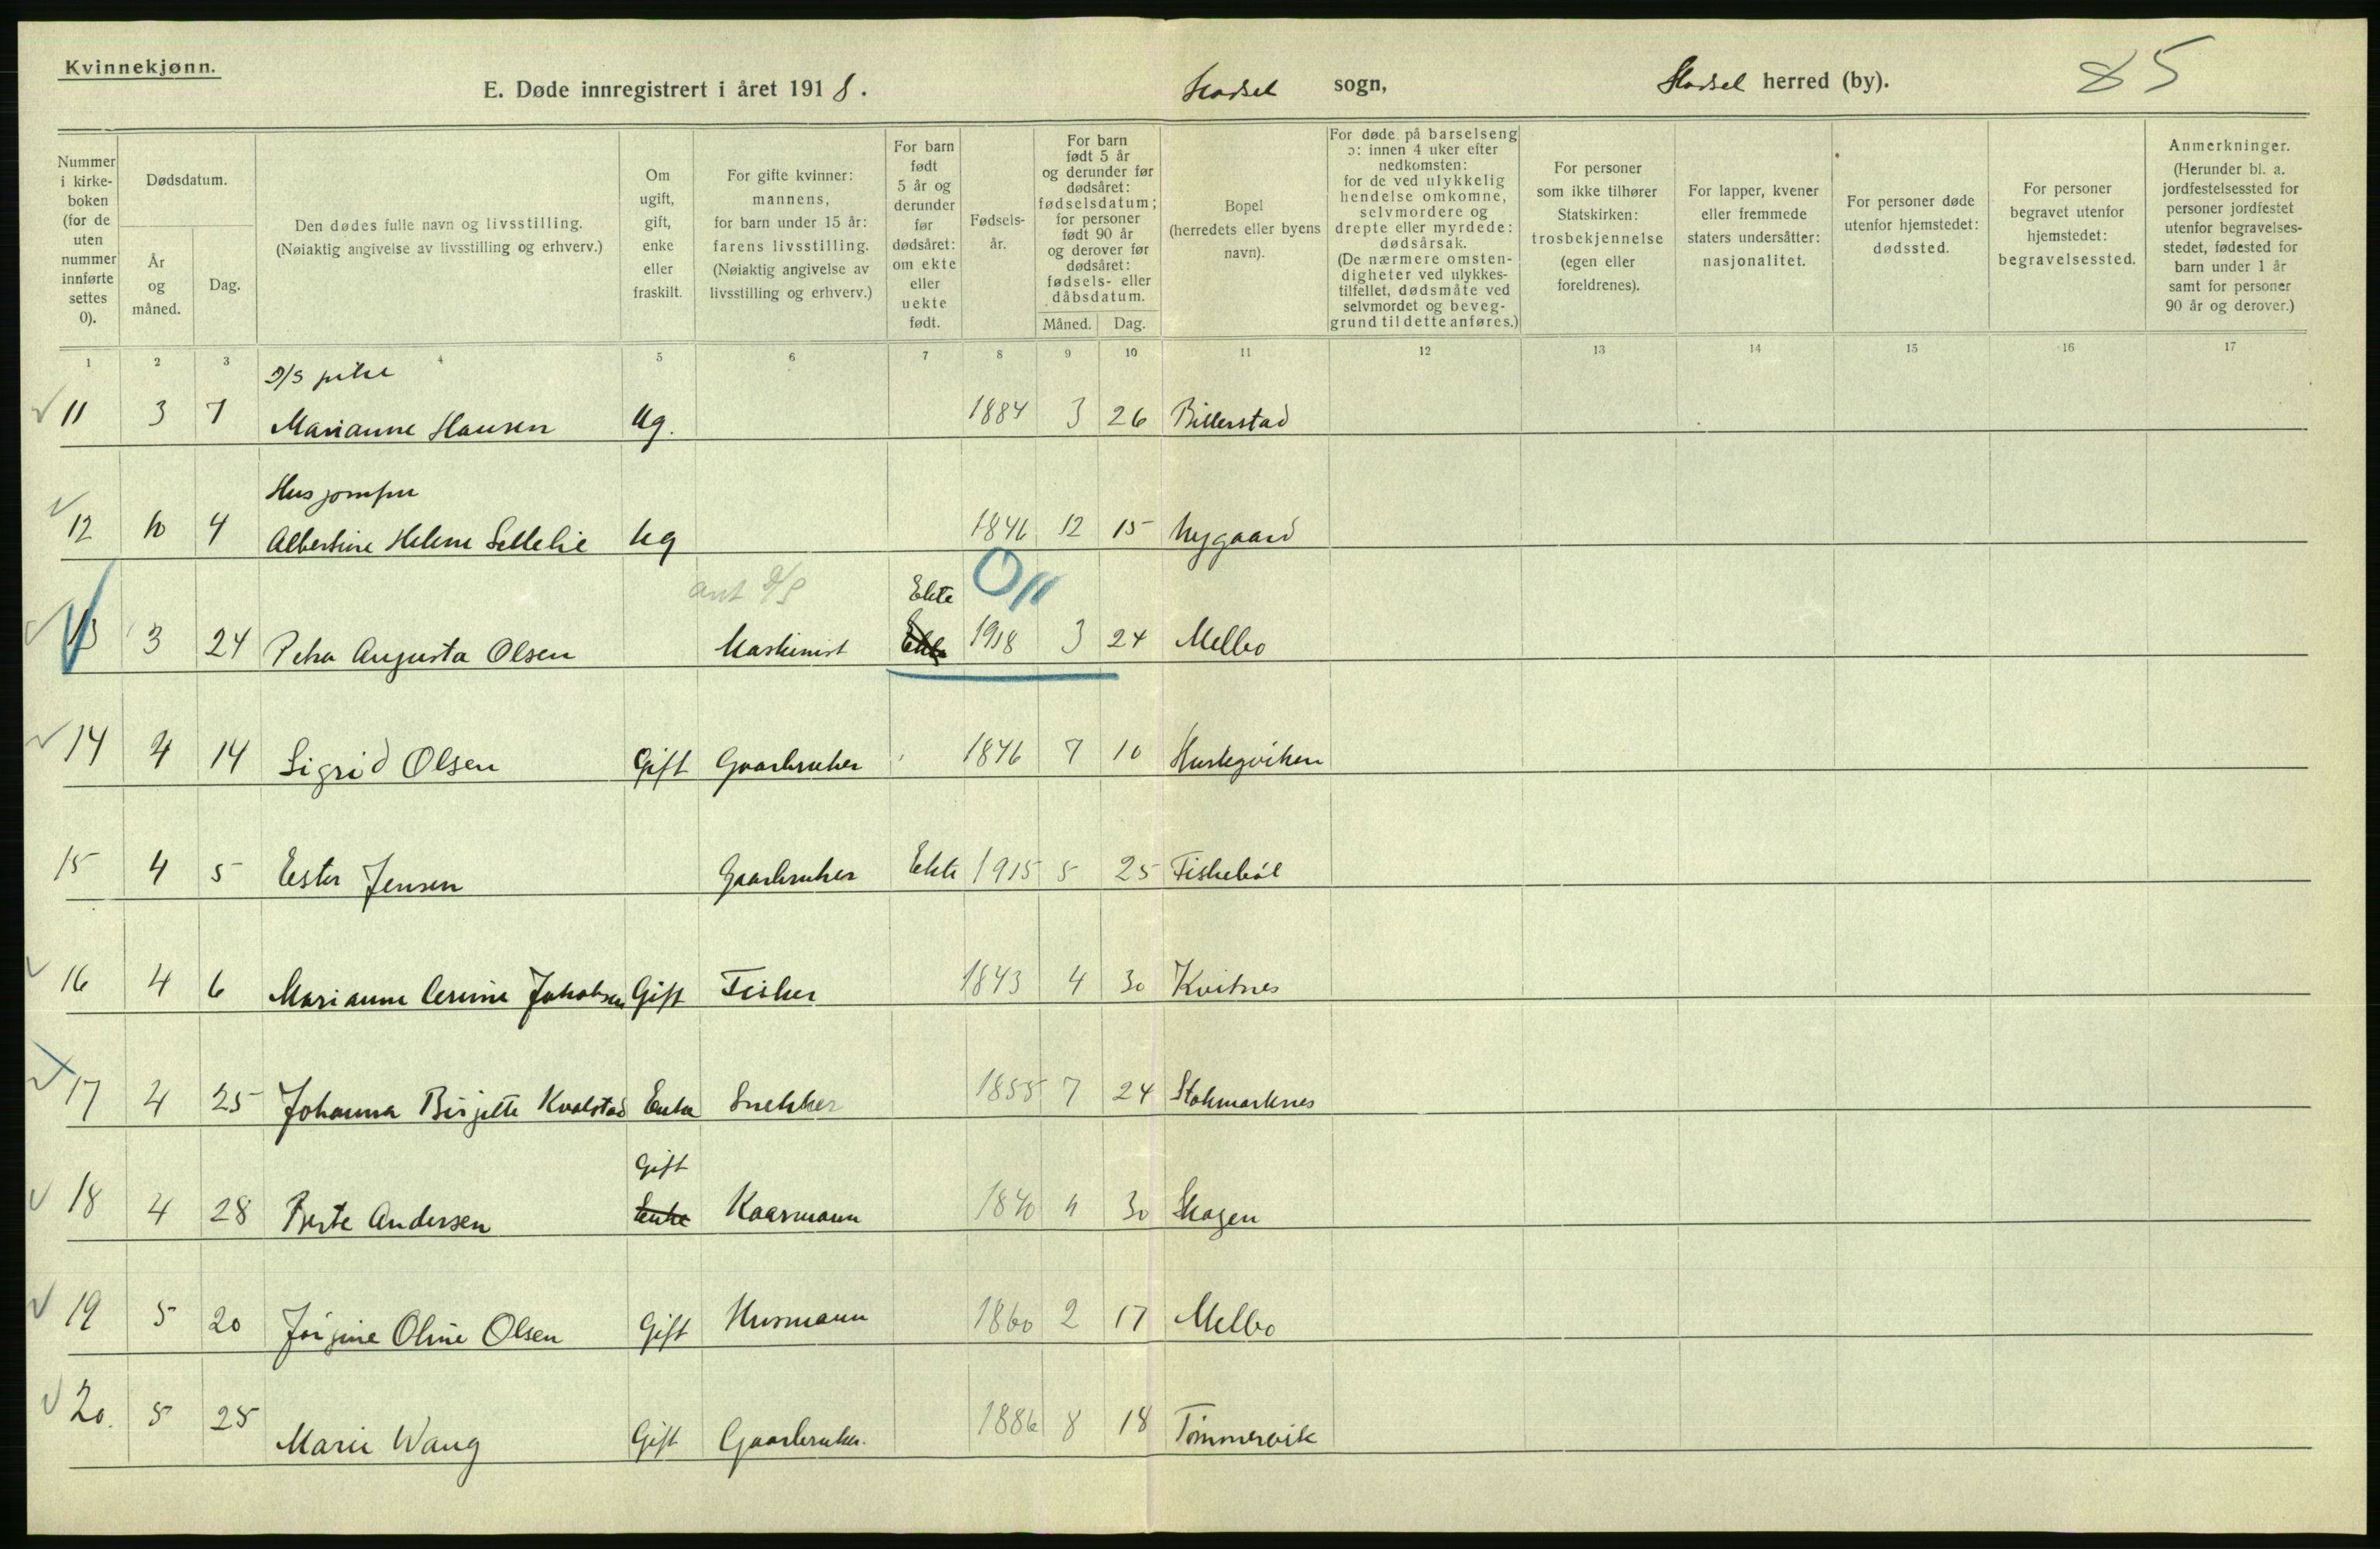 Kvinnekjønn.
E. Døde innregistrert i året 1918. Hadsel sogn, Hadsel herred (by). 85
Nummer i kirkeboken (for de uten nummer innførte settes 0).
Dødsdatum.
År og måned.
Dag.
Den dødes fulle navn og livsstilling. (Nøiaktig angivelse av livsstilling og erhverv.)
Om ugift, gift, enke eller fraskilt.
For gifte kvinner: mannens, for barn under 15 år: farens livsstilling. (Nøiaktig angivelse av livsstilling og erhverv.)
For barn født 5 år og derunder før dødsåret: om ekte eller uekte født.
Fødselsår.
For barn født 5 år og derunder før dødsåret: fødselsdatum; for personer født 90 år og derover før dødsåret: fødsels- eller dåbsdatum.
Måned.
Dag.
Bopel (herredets eller byens navn).
For døde på barselseng ɔ: innen 4 uker efter nedkomsten: for de ved ulykkelig hendelse omkomne, selvmordere og drepte eller myrdede: dødsårsak. (De nærmere omstendigheter ved ulykkestilfellet, dødsmåte ved selvmordet og beveggrund til dette anføres.)
For personer som ikke tilhører Statskirken: trosbekjennelse (egen eller foreldrenes).
For lapper, kvener eller fremmede staters undersåtter: nasjonalitet.
For personer døde utenfor hjemstedet: dødssted.
For personer begravet utenfor hjemstedet: begravelsessted.
Anmerkninger. (Herunder bl. a. jordfestelsessted for personer jordfestet utenfor begravelsesstedet, fødested for barn under 1 år samt for personer 90 år og derover.)
1 2 3 4 5 6 7 8 9 10 11 12 13 14 15 16 17
D/S pike
11 3 7 Marianne Hansen Ug. 1884 3 26 Billerstad
Husjomfru
12 10 4 Albertine Helene Ug 1846 12 15 Nygaard
ant D/S Ekte
13 3 24 Petra Augusta Olsen Maskinist Ekte 1918 3 24 Melbo
14 4 14 Sigrid Olsen Gift Gaardbruker 1846 7 10
15 4 5 Ester Jensen Gaardbruker Ekte 1915 5 25 Fiskebøl
16 4 6 Marianne Jakobsen Gift Fisker 1843 4 30 Kvitnes
17 4 25 Johanna Birgitte Kvalstad Enke Snekker 1855 7 24 Stokmarknes
Gift
18 4 28 Berte Andersen Enke Kaarmann 1840 4 30 Skagen
19 5 20 Jørgine Oline Olsen Gift Husmann 1860 2 17 Melbo
20. 5 25 Marie Wang Gift Gaardbruker. 1886 8 18 Tømmervik